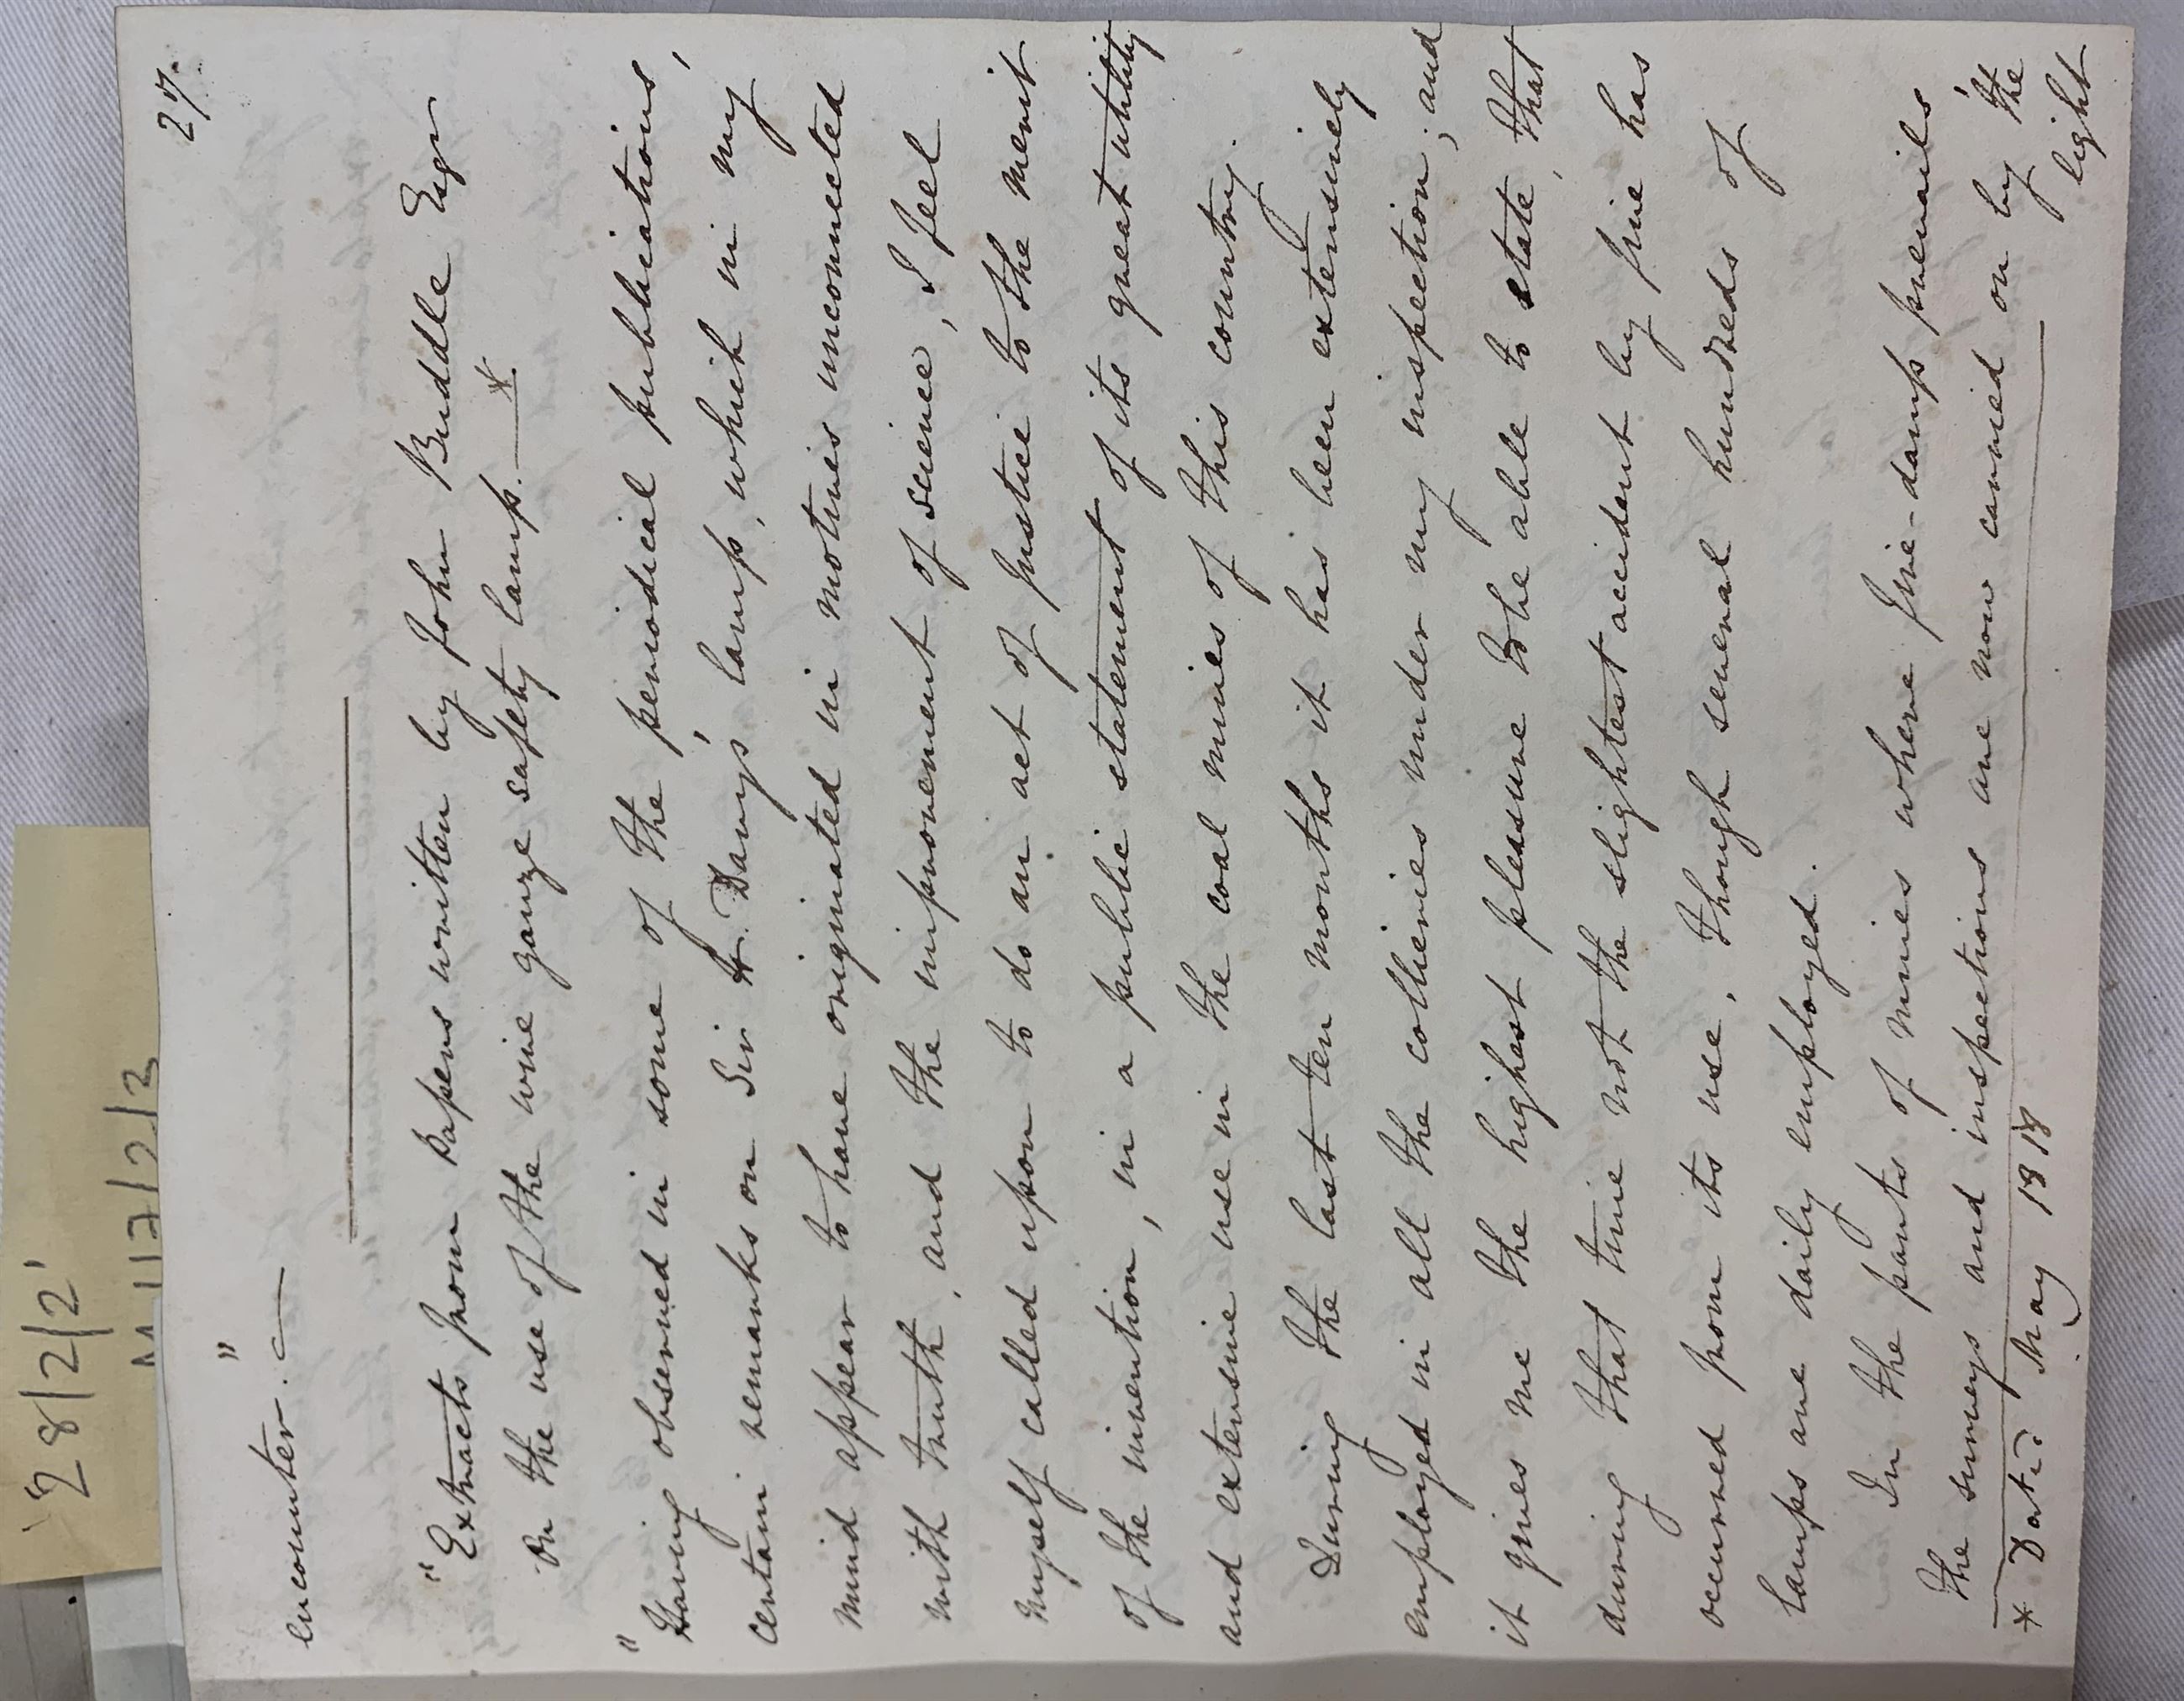 27.
encounter."—
"Extracts from Papers written by John Buddle Esqr
On the use of the wire gauze safety lamp.—*
"Having observed in some of the periodical publications,
certain remarks on Sir H. Davy's lamp, which in my
mind appear to have originated in motives unconnected
with truth, and the improvement of science, I feel
myself called upon to do an act of justice to the merit
of the invention, in a public statement of its great utility
and extensive use in the coal mines of this country.
During the last ten months it has been extensively
employed in all the collieries under my inspection; and
it gives me the highest pleasure to be able to state, that
during that time not the slightest accident by fire has
occurred from its use, though several hundreds of
lamps are daily employed.
In the parts of mines where fire-damp prevails
the surveys and inspections are now carried on by the
light
* Dated May 1818
28/2/2
M112/2/3